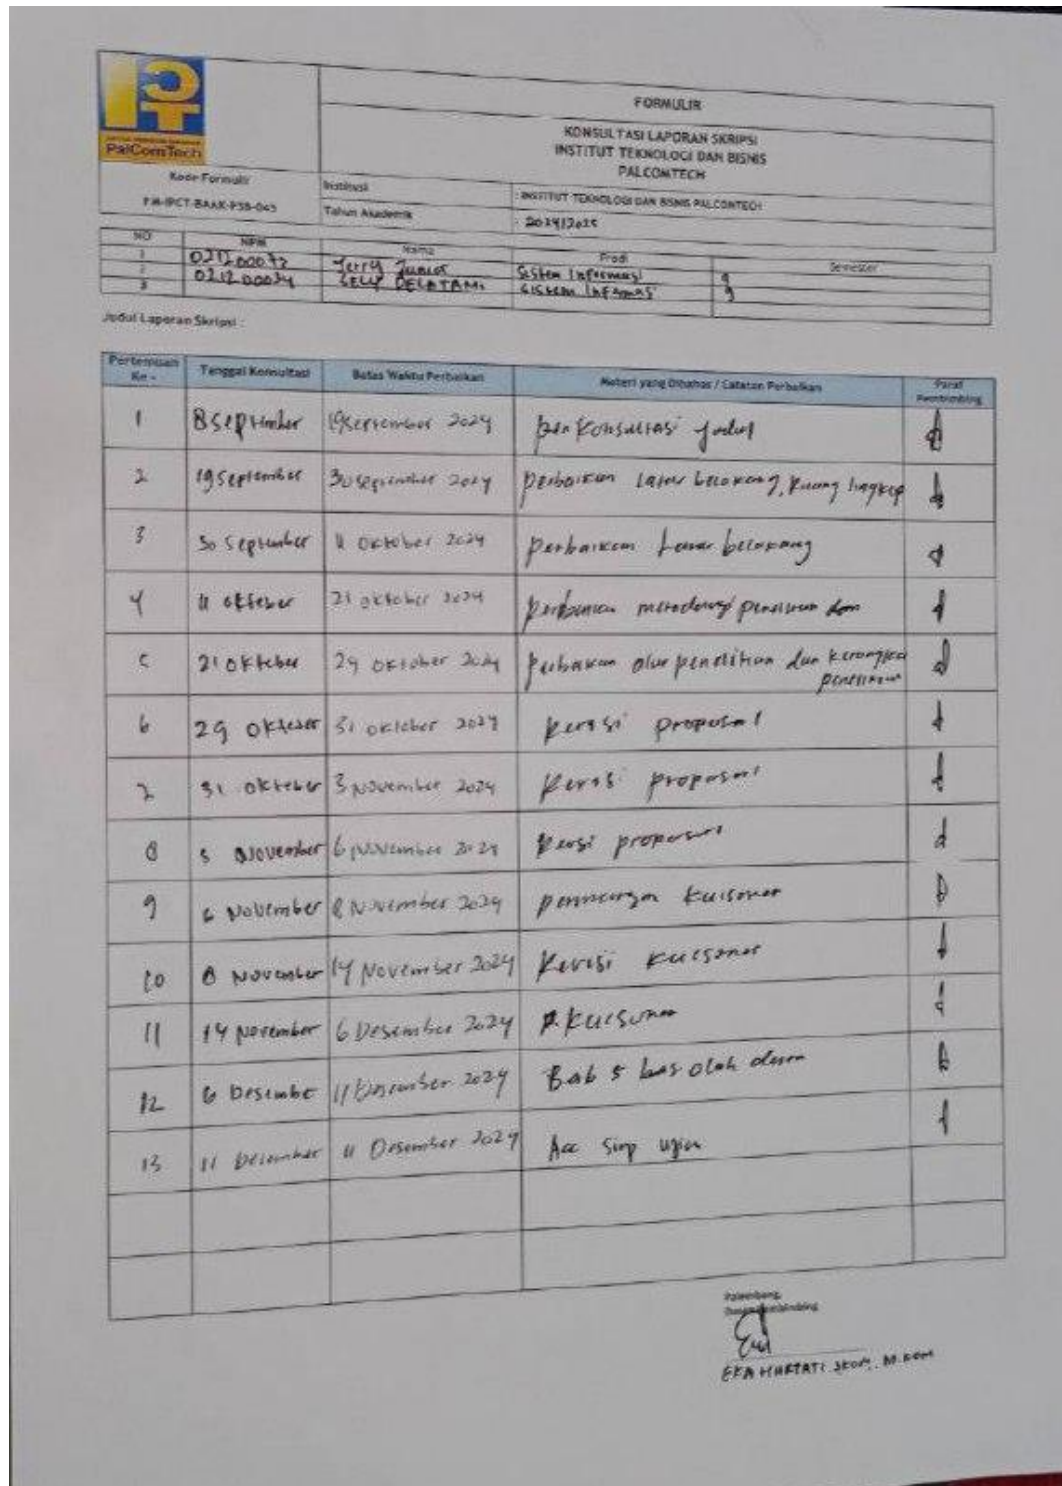 FORMULIR
KONSULTASI LAPORAN SKRIPSI
INSTITUT TEKNOLOGI DAN BISNIS
PALCOMTECH
PalComTech
Kode Formulir
FM-IPCT-BAAK-PSB-045
Institusi : INSTITUT TEKNOLOGI DAN BISNIS PALCOMTECH
Tahun Akademik : 2024/2025
NO NPM Nama Prodi Semester
1 Jerry Junior Sistem Informasi 9
2 SELY DELATAMI 9
3
Judul Laporan Skripsi :
Pertemuan Ke - Tanggal Konsultasi Batas Waktu Perbaikan Materi yang Dibahas / Catatan Perbaikan Paraf Pembimbing
1 8 September 19 September 2024 Konsultasi Judul
2 19 September 30 September 2024 perbaikan latar belakang, Ruang lingkup
3 30 September 11 Oktober 2024 perbaikan latar belakang
4 11 Oktober 21 Oktober 2024 perbaikan metodologi penelitian dan
5 21 Oktober 29 Oktober 2024 perbaikan alur penelitian dan kerangka
penelitian
6 29 Oktober 31 Oktober 2024 Revisi proposal
7 31 Oktober 3 November 2024 Revisi proposal
8 November 6 November 2024 proposal
9 6 November 8 November 2024
10 8 November 14 November 2024 Revisi
11 14 November 6 Desember 2024
12 6 11 2024 Bab 5 olah
13 11 11 Desember 2024 Acc Siap ujian
Palembang,
Dosen Pembimbing
M.Kom